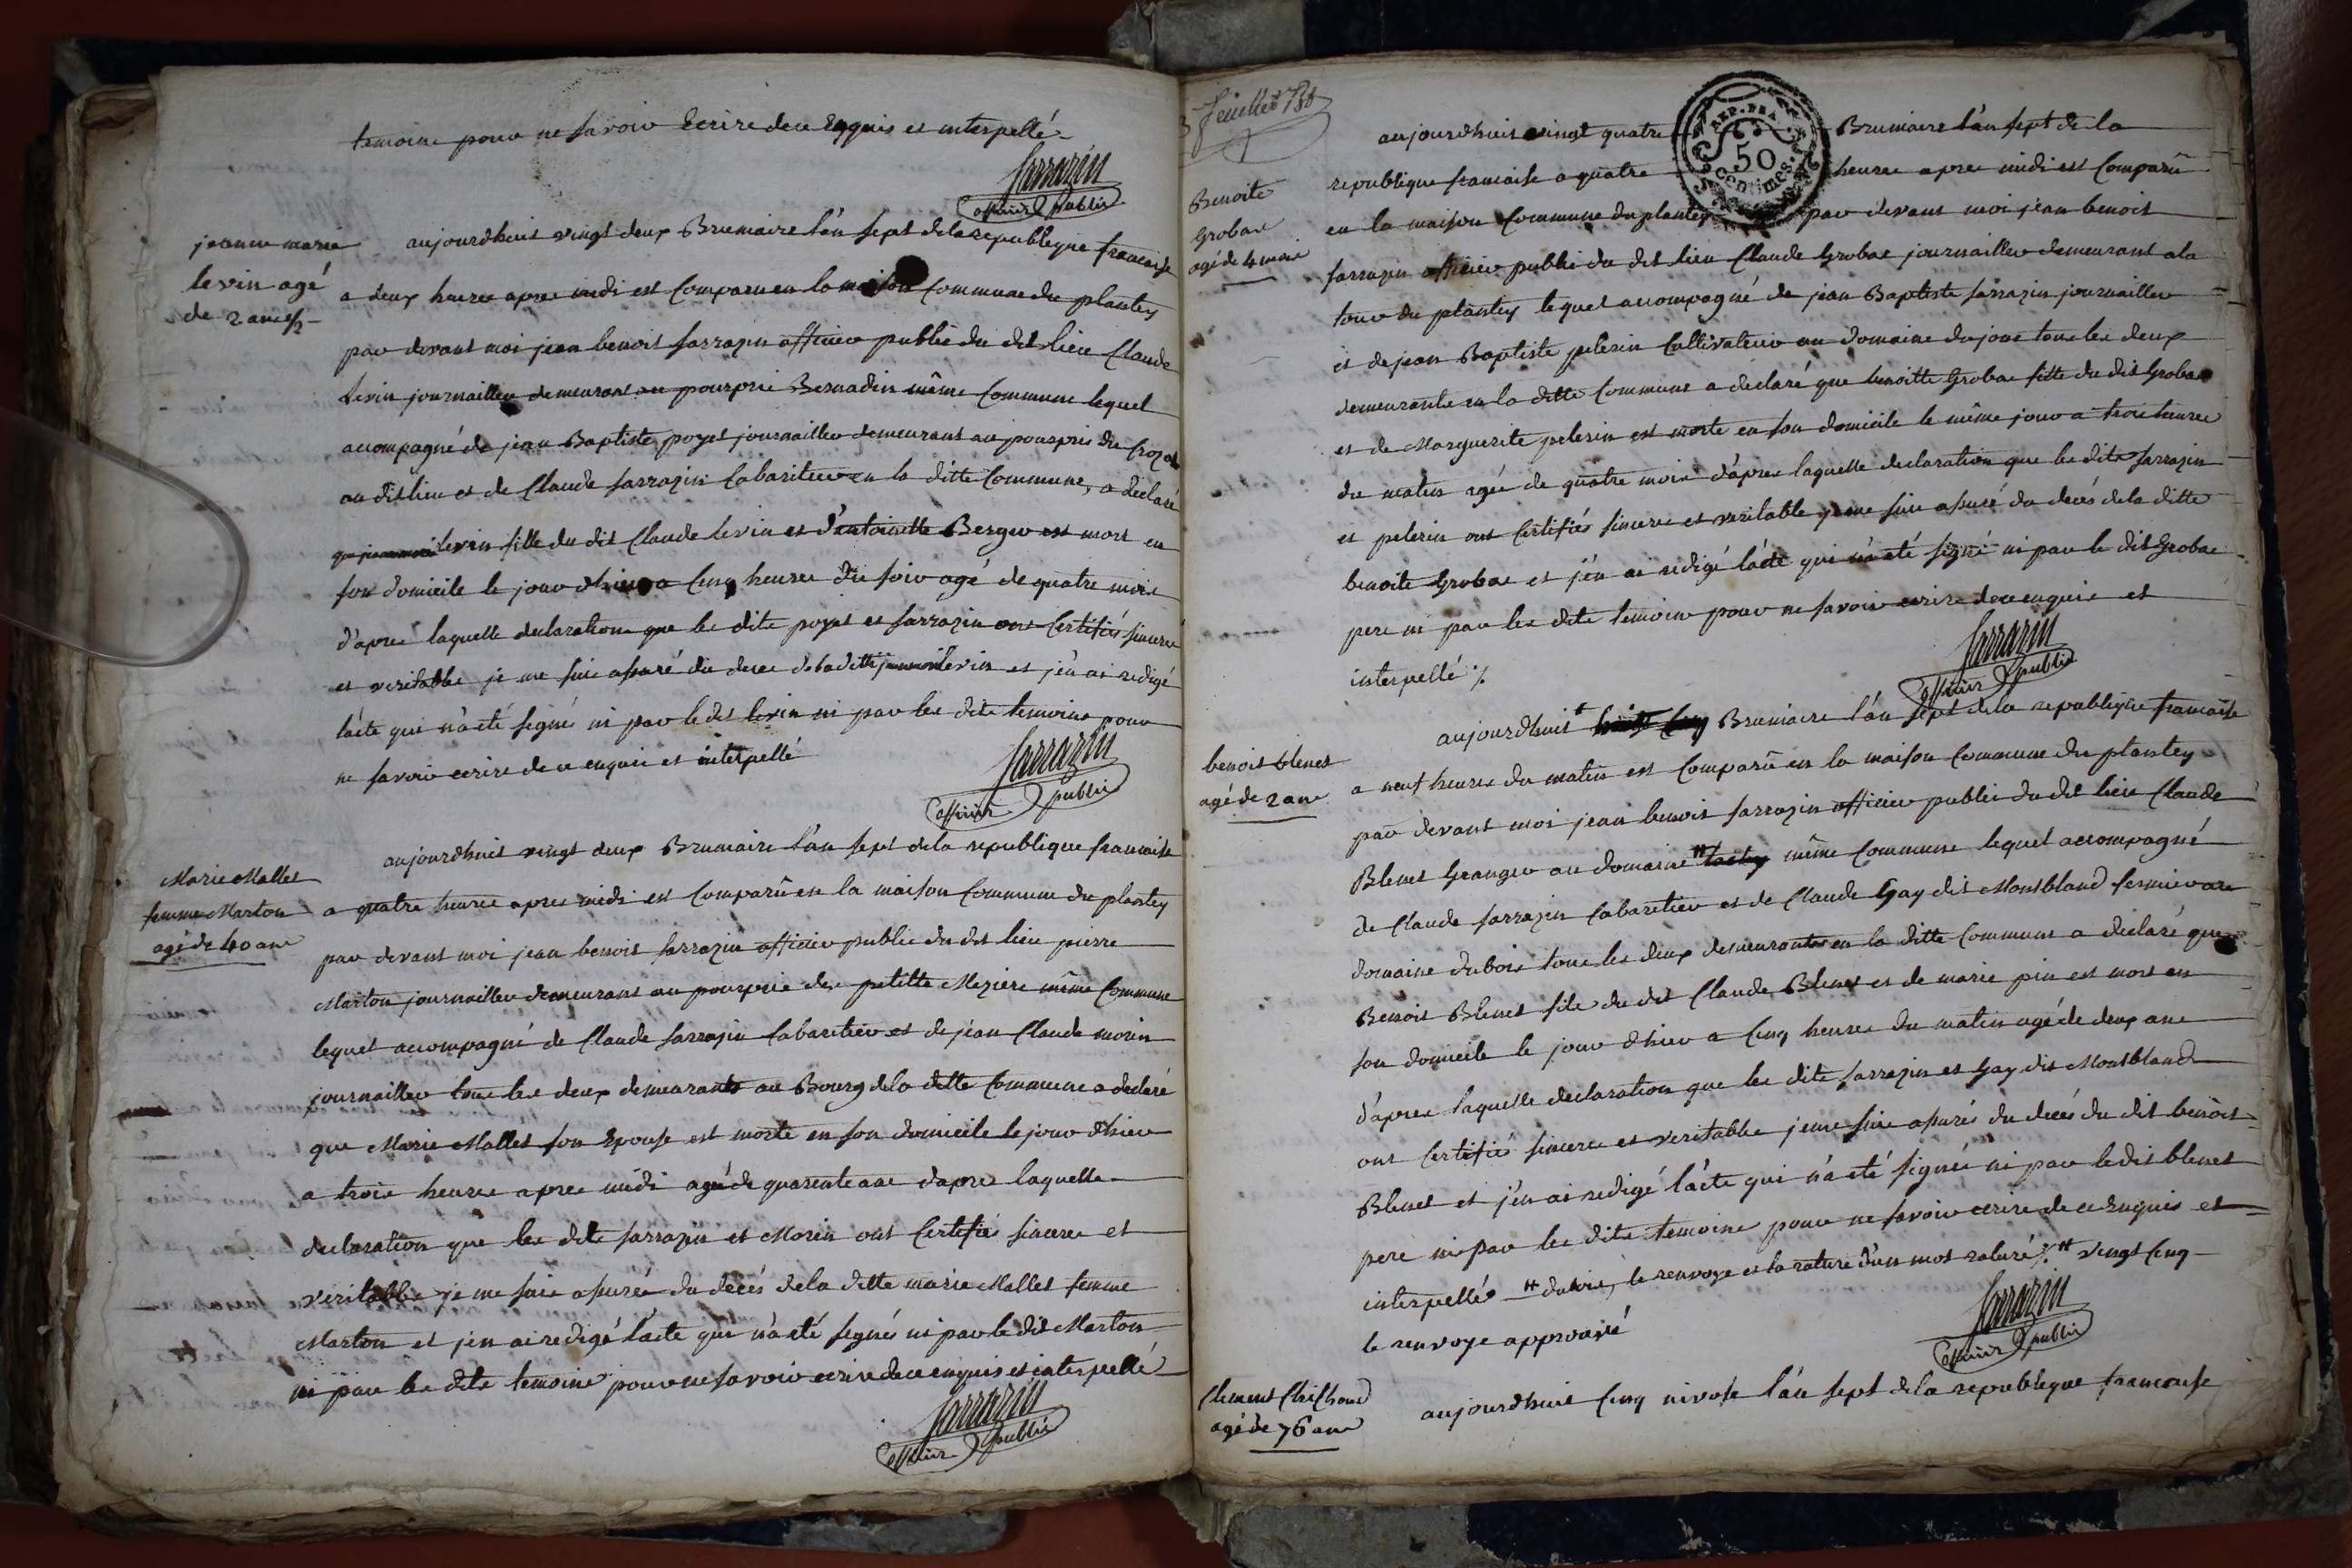 temoins pour ne savoir Ecrire de ce Enquis et interpellé
Sarrazin
officier public
jeanne marie
levin agé
de 2 ans ½
aujourdhuit vingt deux Brumaire l'an sept de la republique francaise
a deux heures apres midi est Comparu en la maison Commune du plantey
par devant moi jean benoit sarrazin officier public du dit lieu Claude
levin journaillier demeurant au pourprix Bernadin même Commune lequel
accompagné de jean Baptiste poyet journaillier demeurant au pourpris du Croza
au dit lieu et de Claude sarrazin Cabaritier en la ditte Commune, a declaré
que levin fille du dit Claude levin et d'entoinette Berger est mort en
son domicile le jour dhier a Cinq heures du soir agé de quatre mois
d'apres laquelle declaration que les dits poyet et sarrazin ont Certifiés sincere
et veritable je me suis assuré du deces de la ditte levin et j'en ai redigé
l'acte qui n'a eté signé ni par le dit levin ni par les dits temoins pour
ne savoir ecrire de ce enquis et interpellé
Sarrazin
officier public
Marie Mallet
femme Marton
agé de 40 ans
aujourdhuit vingt deux Brumaire l'an sept de la republique francaise
a quatre heures apres midi est Comparû en la maison Commune du plantey
par devant moi jean benoit sarrazin officier public du dit lieu pierre
Marton journaillier demeurant au pourprix des petitte Meziere même Commune
lequel accompagné de Claude sarrazin Cabaretier et de jean Claude morin
journaillier tous les deux demeurants au Bourg de la ditte Commune a declaré
que Marie Mallet son Epouse est morte en son domicile le jour dhier
a trois heures apres midi agé de quarente ans d'apres laquelle
declaration que les dits sarrazin et Morin ont Certifié sincere et
veritable je me suis assuré du decés de la ditte marie Mallet femme
Marton et j'en ai redigé l'acte qui n'a eté signés ni par le dit Marton
ni par les dits temoins pour ne savoir ecrire de ce enquis et interpellé
Sarrazin
officier public
REP. FRA.
50
centimes
Benoite
Grobas
agé de 4 mois
aujourdhuit vingt quatre Brumaire l'an sept de la
republique francaise a quatre heures apres midi est Comparû
en la maison Commune du plantey par devant moi jean benoit
sarrazin officier public du dit lieu Claude Grobas journaillier demeurant a la
tour du plantey lequel accompagné de jean Baptiste sarrazin journaillier
et de jean Baptiste pelerin Cultivateur au domaine du jone tous les deux
demeurants en la ditte Commune a declaré que benoitte Grobas fille du dit Grobas
et de Marguerite pelerin est morte en son domicile le même jour a trois heures
du matin agée de quatre mois d'apres laquelle declaration que les dits sarrazin
et pelerin ont Certifiés sincere et veritable je me suis assuré du decés de la ditte
benoite Grobas et j'en ai redigé l'acte qui n'a eté signé ni par le dit Grobas
pere ni par les dits temoins pour ne savoir ecrire de ce enquis et
interpellé ./.
Sarrazin
officier public
benoit blenet
agé de 2 ans
aujourdhuit # Brumaire l'an sept de la republique francaise
a neuf heures du matin est Comparû en la maison Commune du plantey
par devant moi jean benoit sarrazin officier public du dit lieu Claude
Blenet Granger au domaine # même Commune lequel accompagné
de Claude sarrazin Cabaretier et de Claude Gay dit Montbland fermier au
domaine dubois tous les deux demeurants en la ditte Commune a declaré que
Benoit Blenet fils du dit Claude Blenet et de marie pin est mort en
son domicile le jour dhier a Cinq heures du matin agé de deux ans
d'apres laquelle declaration que les dits sarrazin et Gay dit Montbland
ont Certifié sincere et veritable je me suis assurés du decés du dit benoit
Blenet et j'en ai redigé l'acte qui n'a eté signés ni par le dit blenet
pere ni par les dits temoins pour ne savoir ecrire de ce Enquis et
interpellé # le renvoye et la rature d'un mot raturé ./. # vingt Cinq
le renvoye approuvé
Sarrazin
officier public
Clement Chichoud
agé de 76 ans
aujourdhuit Cinq nivose l'an sept de la republique francaise